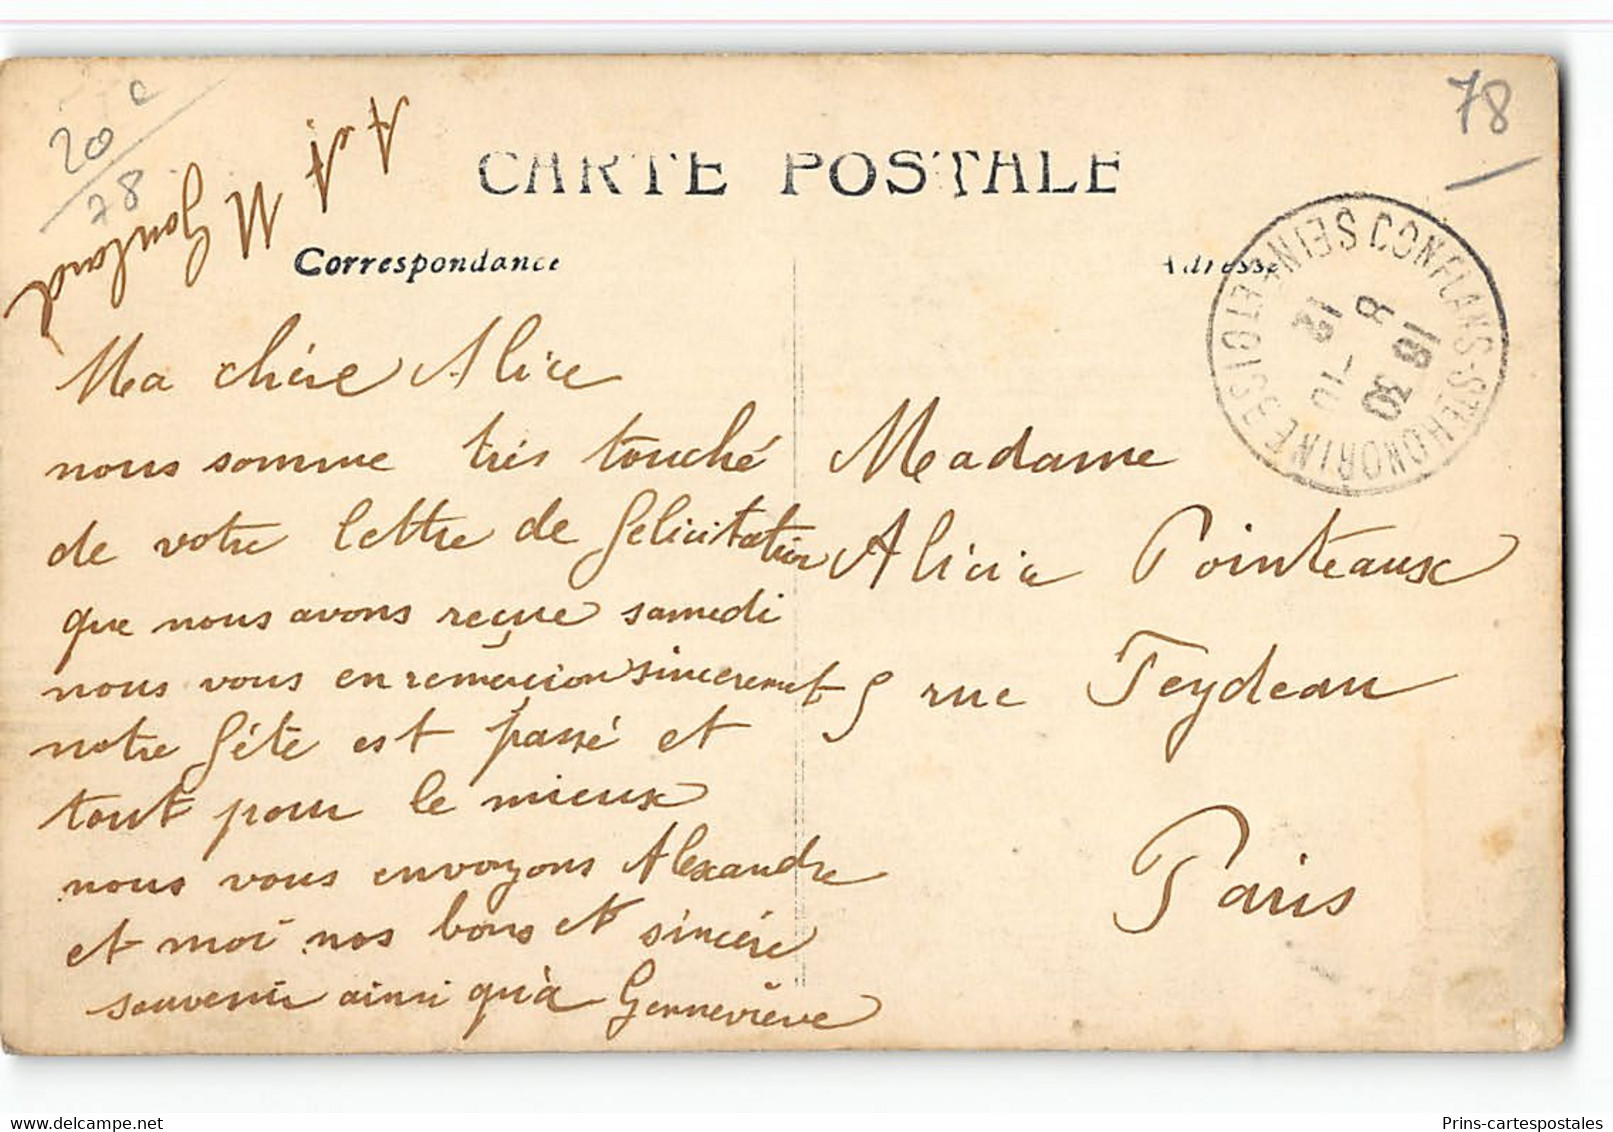 20 e
78
78
CARTE POSTALE
Correspondance
Adresse
CONFLANS-STE HONORINE
SEINE ET OISE
18 30
8
12
10
Ma chére Alice
nous somme trés touché
de votre lettre de felicitation
que nous avons reçue samedi
nous vous en remercion sincerement
notre féte est passé et
tout pour le mieux
nous vous envoyons Alexandre
et moi nos bons et sincére
souvenir ainsi qu'à Genneviéve
A et A
M Goulard
Madame
Alicia Pointeaux
5 rue Feydeau
Paris
Prins-cartespostales